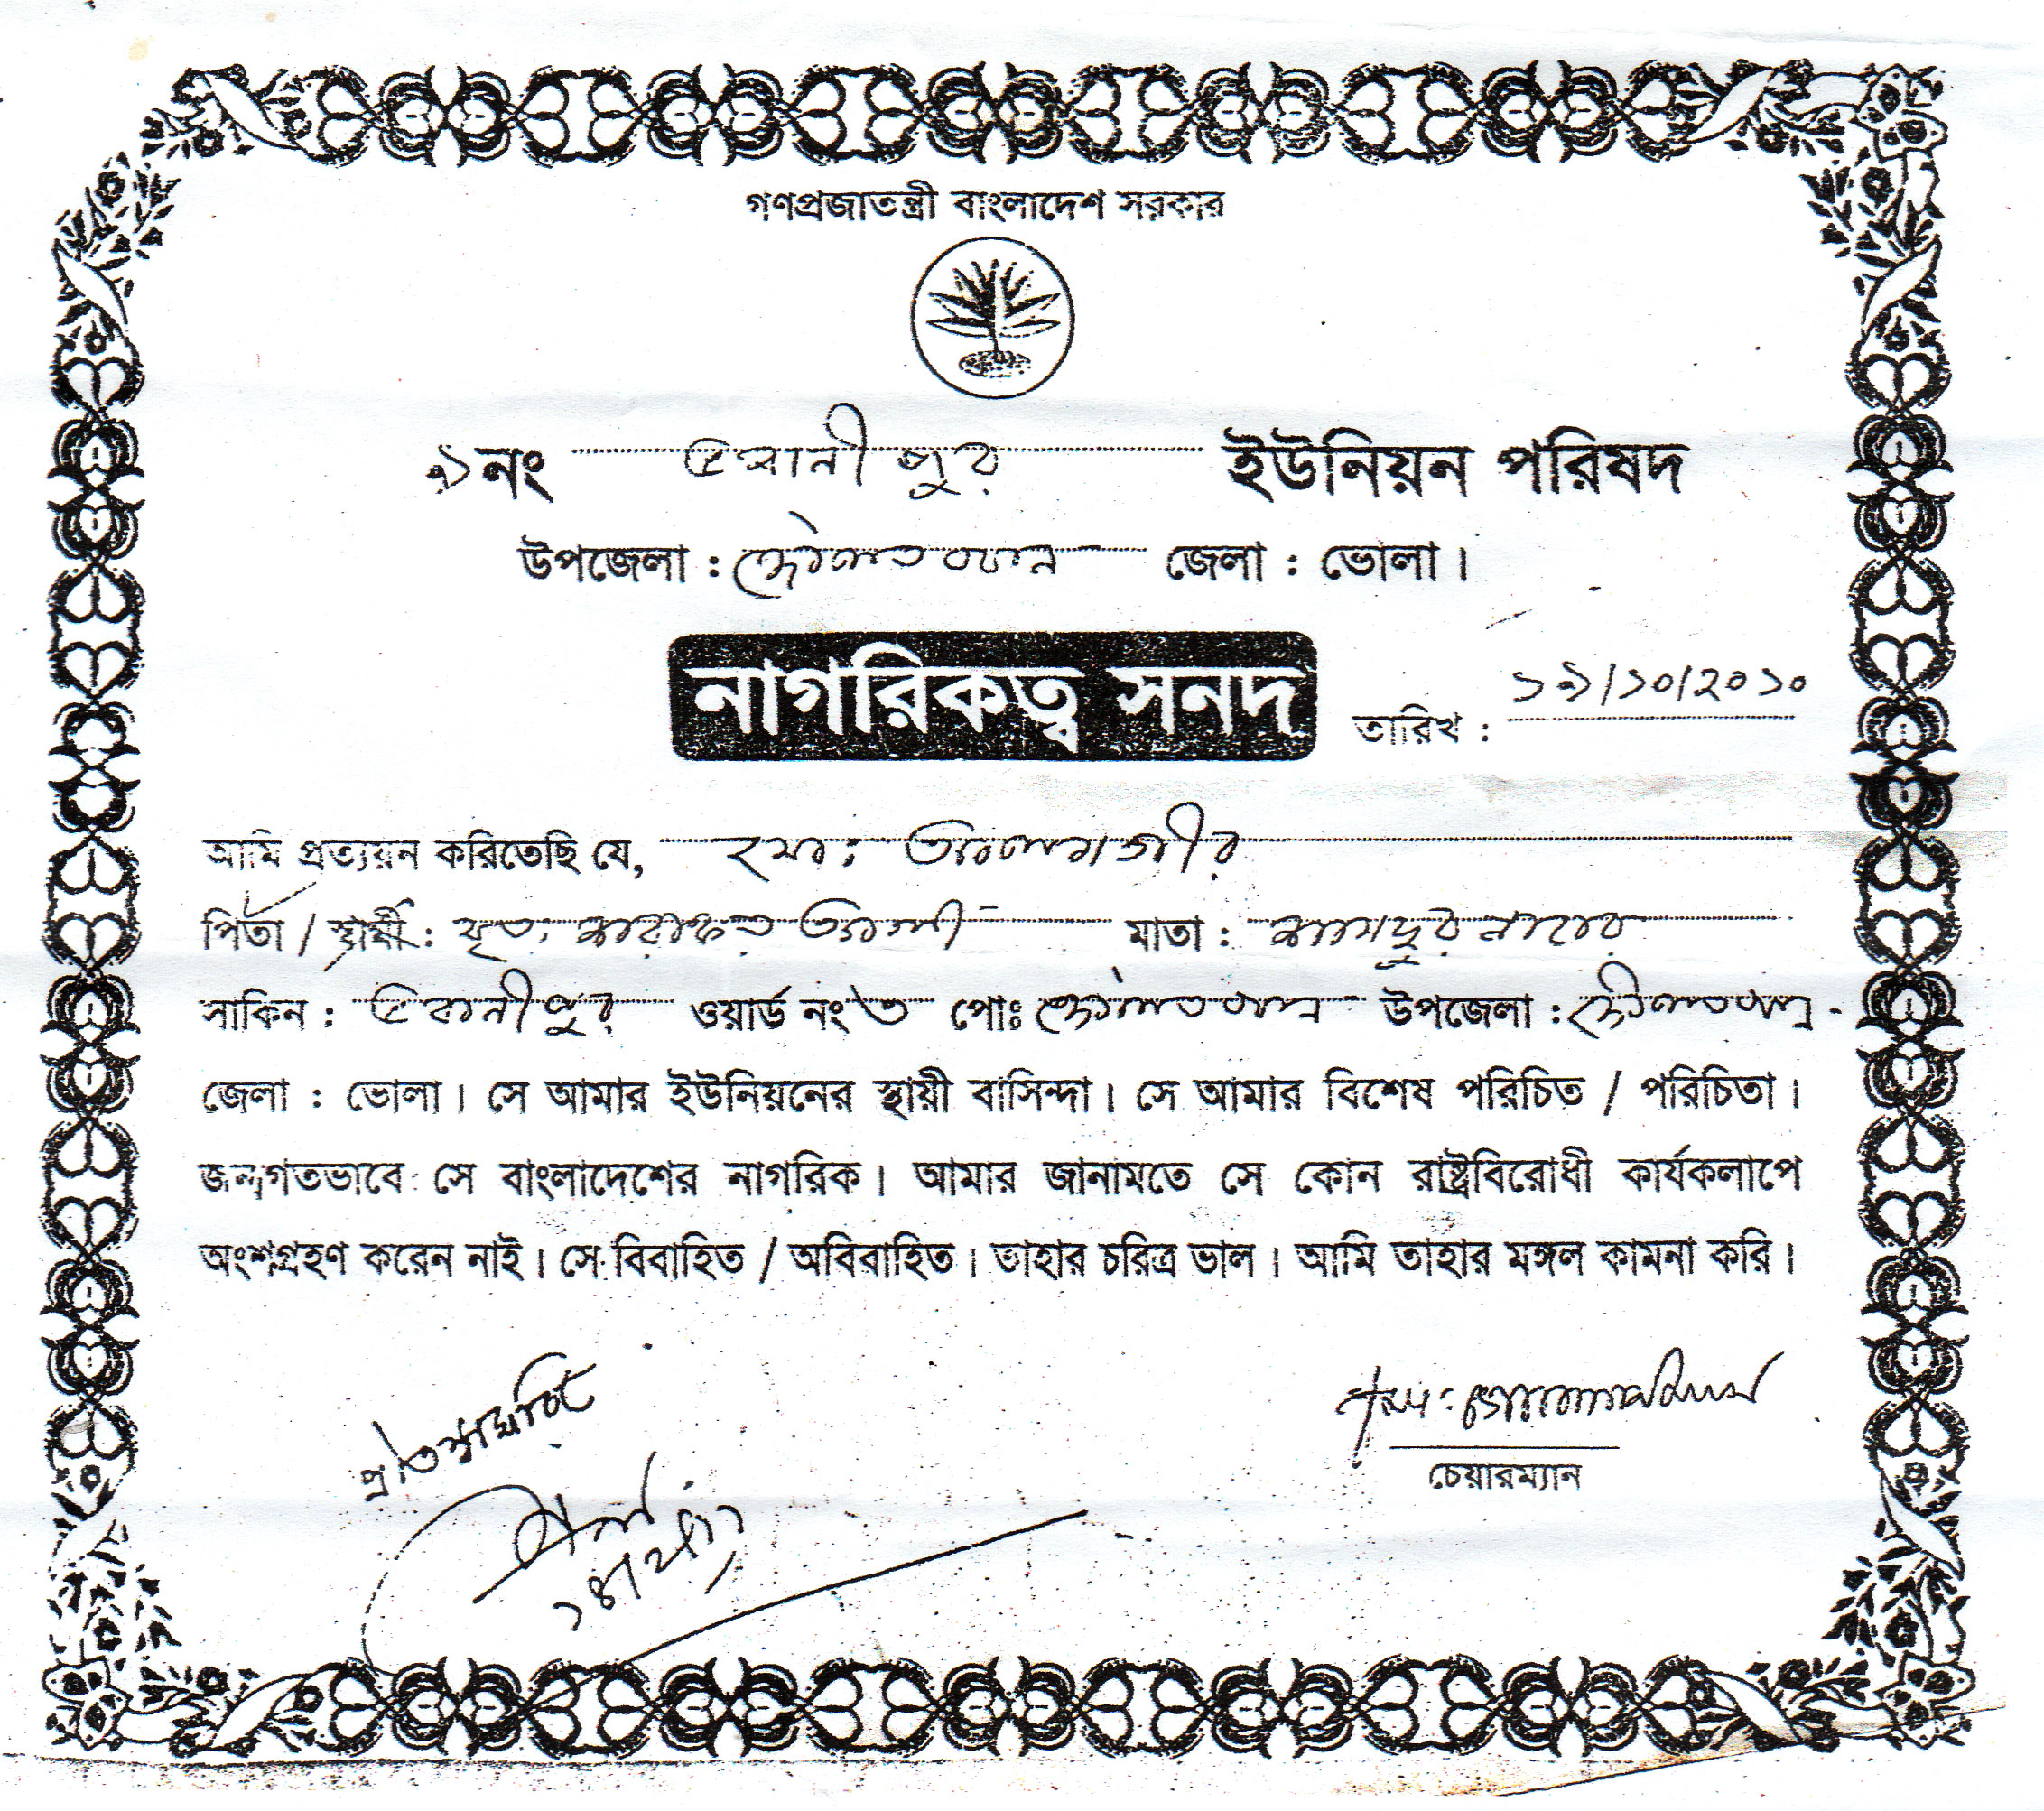 গণপ্রজাতন্ত্রী বাংলাদেশ সরকার
৯নং ভবানীপুর ইউনিয়ন পরিষদ
উপজেলা : দৌলতখান জেলা : ভোলা।
নাগরিকত্ব সনদ
তারিখ : ১৯/১০/২০১০
আমি প্রত্যয়ন করিতেছি যে, মোঃ আলমগীর
পিতা / স্বামী : মৃত মাতা :
সাকিন : ভবানীপুর ওয়ার্ড নং ৩ পোঃ দৌলতখান উপজেলা : দৌলতখান
জেলা : ভোলা। সে আমার ইউনিয়নের স্থায়ী বাসিন্দা। সে আমার বিশেষ পরিচিত / পরিচিতা।
জন্মগতভাবে সে বাংলাদেশের নাগরিক। আমার জানামতে সে কোন রাষ্ট্রবিরোধী কার্যকলাপে
অংশগ্রহণ করেন নাই। সে বিবাহিত / অবিবাহিত। তাহার চরিত্র ভাল। আমি তাহার মঙ্গল কামনা করি।
চেয়ারম্যান